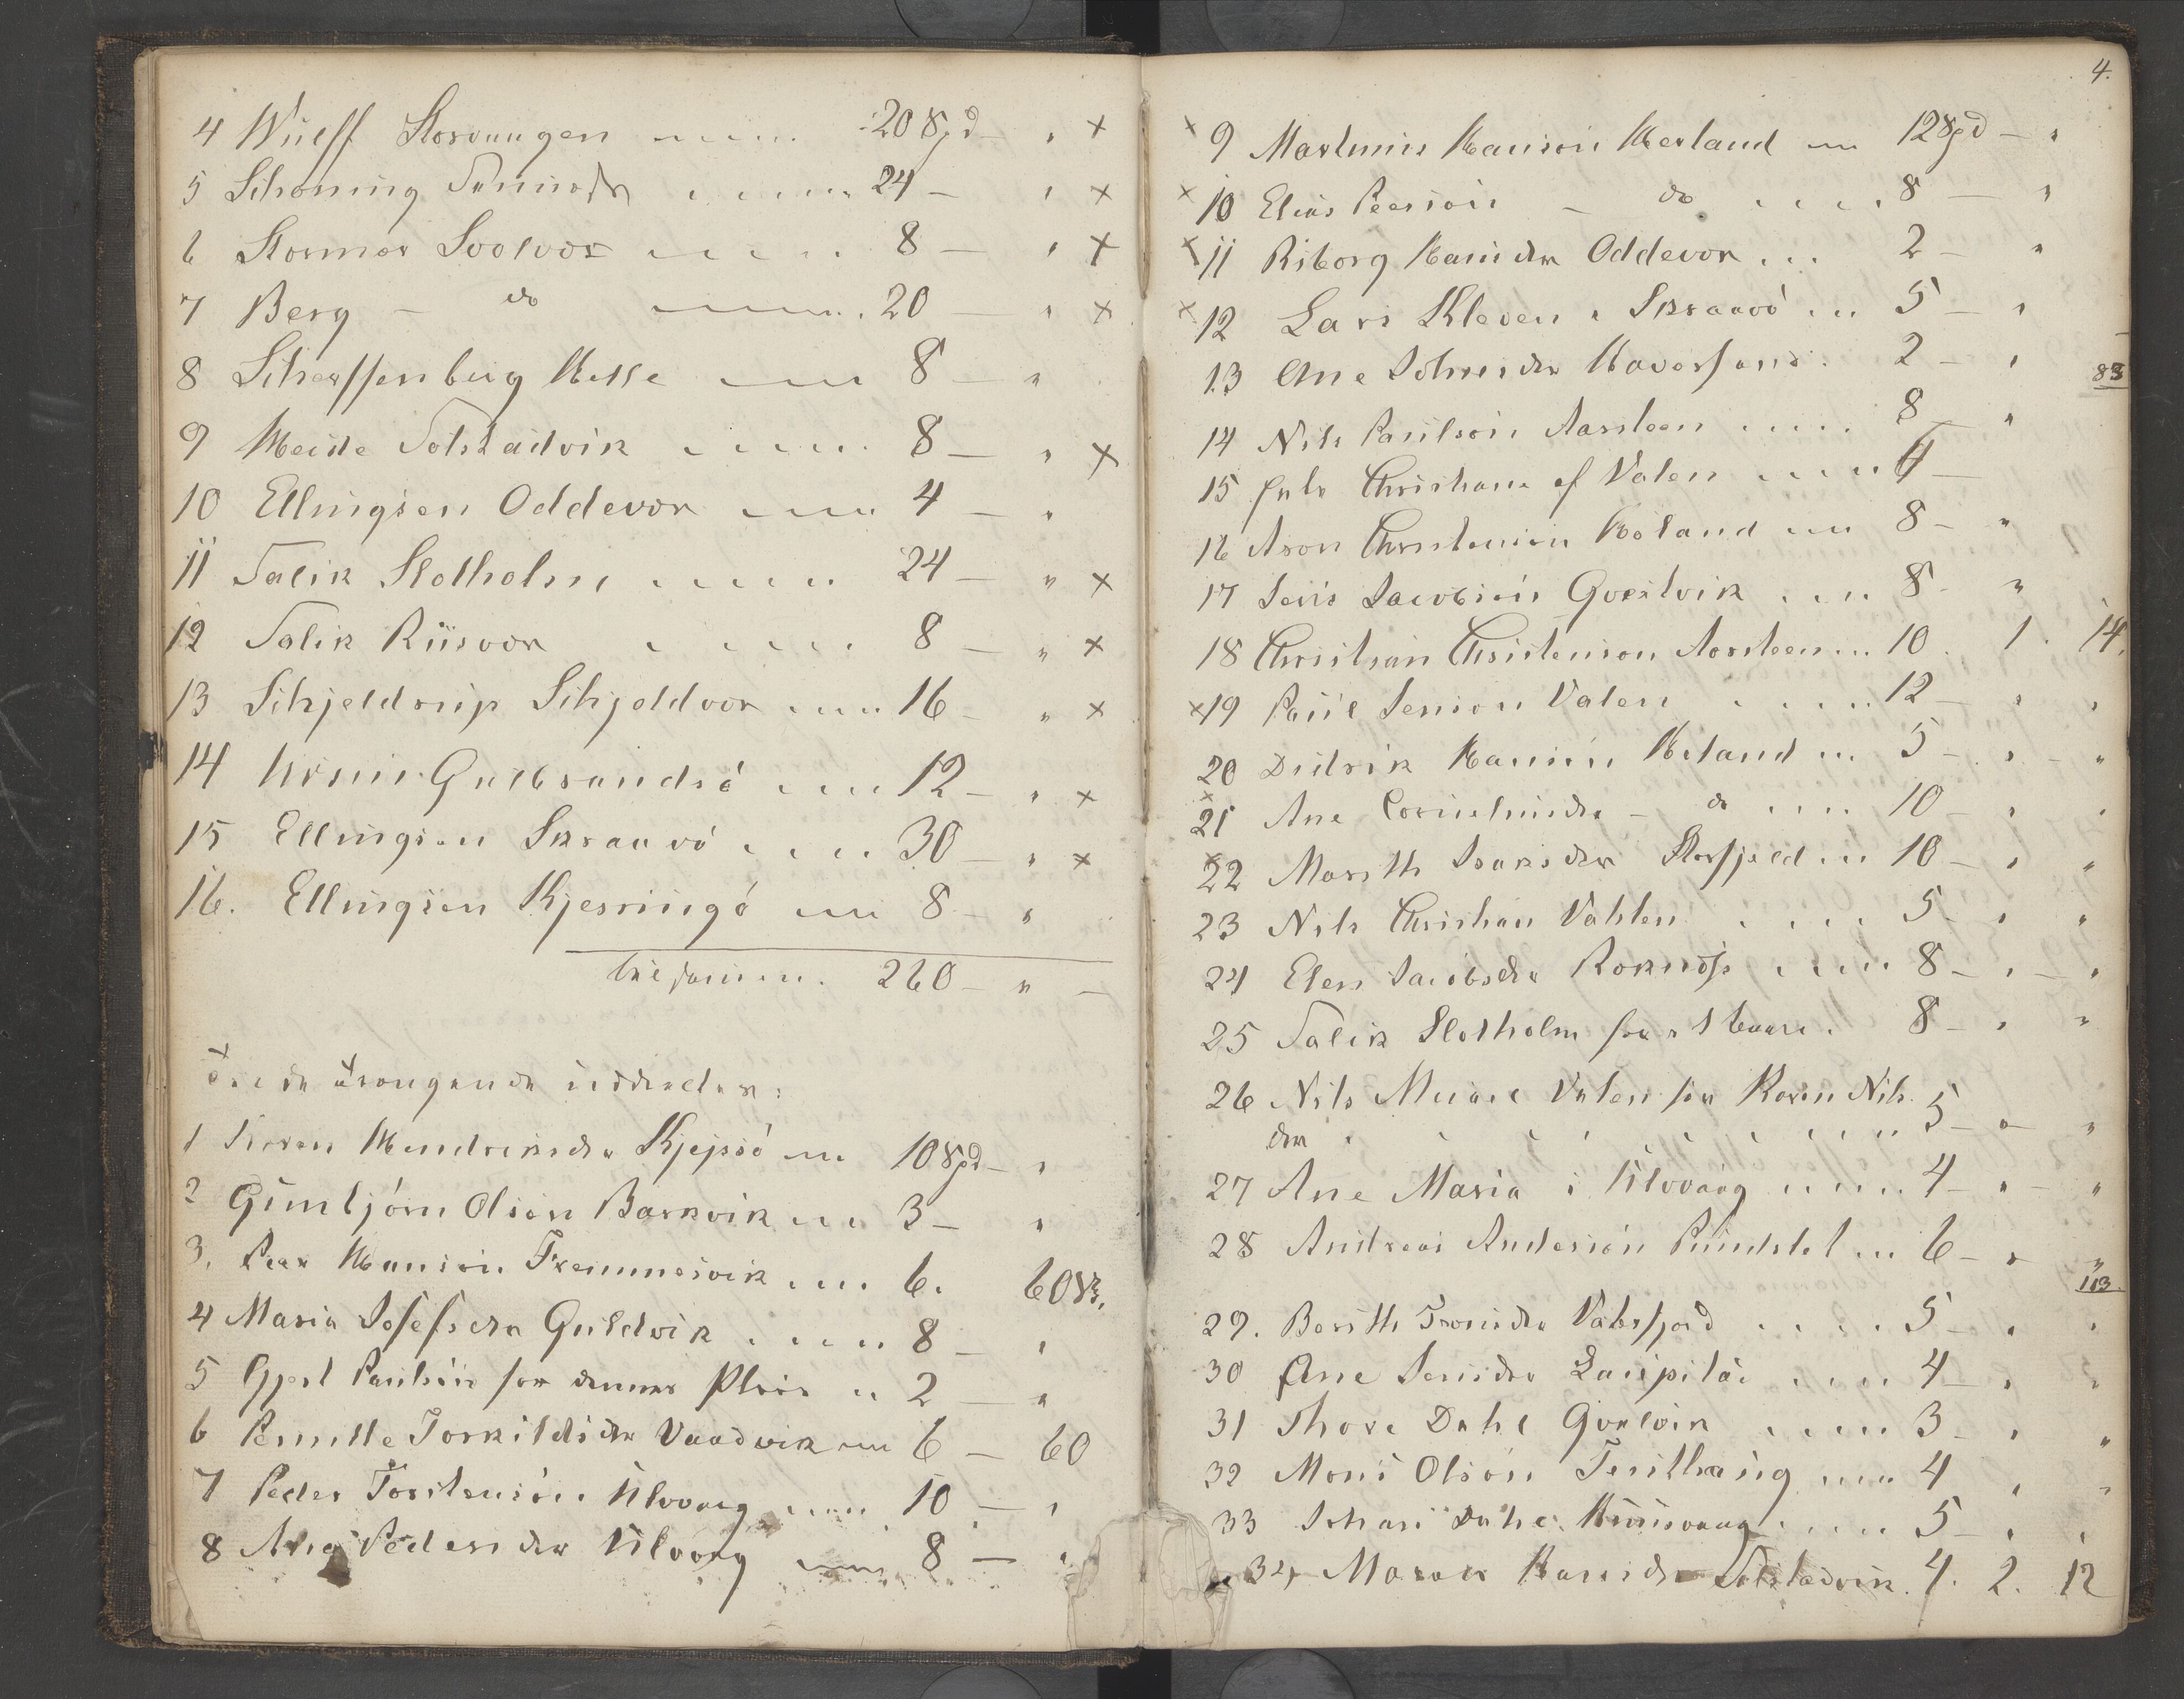 4 Wulff Storvaagen 20 Spd - " ×
5 Schøning 24 - " ×
6 Stormer Svolvær 8 - " ×
7 Berg - do 20 - " ×
8 Scherffenberg Helle 8 - "
9 Heide Tolstadvik 8 - " ×
10 Ellingsen Oddevær 4 - "
11 Falik Slotholm 24 - " ×
12 Falik Riisvær 8 - " ×
13 Schjeldrup Schjeldvær 16 - " ×
14 Guldbrandsö 12 - " ×
15 Ellingsen Skraavö 30 - " ×
16. Ellingsen Kjerringö 8 - "
260 - " -
1 Hendriksdr Kjepsö 10 Spd - "
2 Gunbjörn Olsen Barkvik 3 - "
3. Peer Hansön Fremmesvik 6. 60 s.
4 Maria Josefsdr Guldvik 8 - "
5 Gjert Paulsön for dennes 2 - "
6 Pernille Torkildsdr Vaadvik 6 - 60
7 Peder Torstensön Ulvaag 10 - "
8 Ana Pedersdr Ulvaag 8 - "
4.
× 9 Martinus Hansön Herland 12 Spd - "
× 10 Elias Peersön - do 8 - "
× 11 Riborg Hansdr Oddevær 2 - "
× 12 Lars Kleven i Skraavö 5 - "
13 Ane Johnsdr Haversand 2 - "
83
14 Nils Paulsön Aarsteen 8 - "
15 Christiane af Valen 4 -
16 Aron Christensön Heland 8 - "
17 Jens Jacobsön Gvestvik 8 - "
18 Christian Christensön Aarsteen 10. 1. 14.
×19 Paul Jensön Valen 12 - " "
20 Didrik Hansön Heland 5 - " - "
×
21 Ane Corneliusdr - do 10 - " "
×22 Marith Isaksdr Storfjeld 10 - " "
23 Nils Christian Vahlen 5 - " "
24 Elen Jacobsdr Roknös 8 - " - "
25 Falik Slotholm for 8 - " "
26 Nils Valen for Karen Nils
dr 5 - " - "
27 Ane Maria i Ulvvaag 4 - " - "
28 Andreas Andersön 6 - " "
113.
29. Berith Tronsdr Valsfjord 5 - " "
30 Ane Jensdr 4 - " "
31 Thore Dahl Gvalvik 3 - " "
32 Mons Olsön 4 " "
33 Johan Dahl 5 - " "
34 Hansdr Tolstadvik. 4. 2. 12